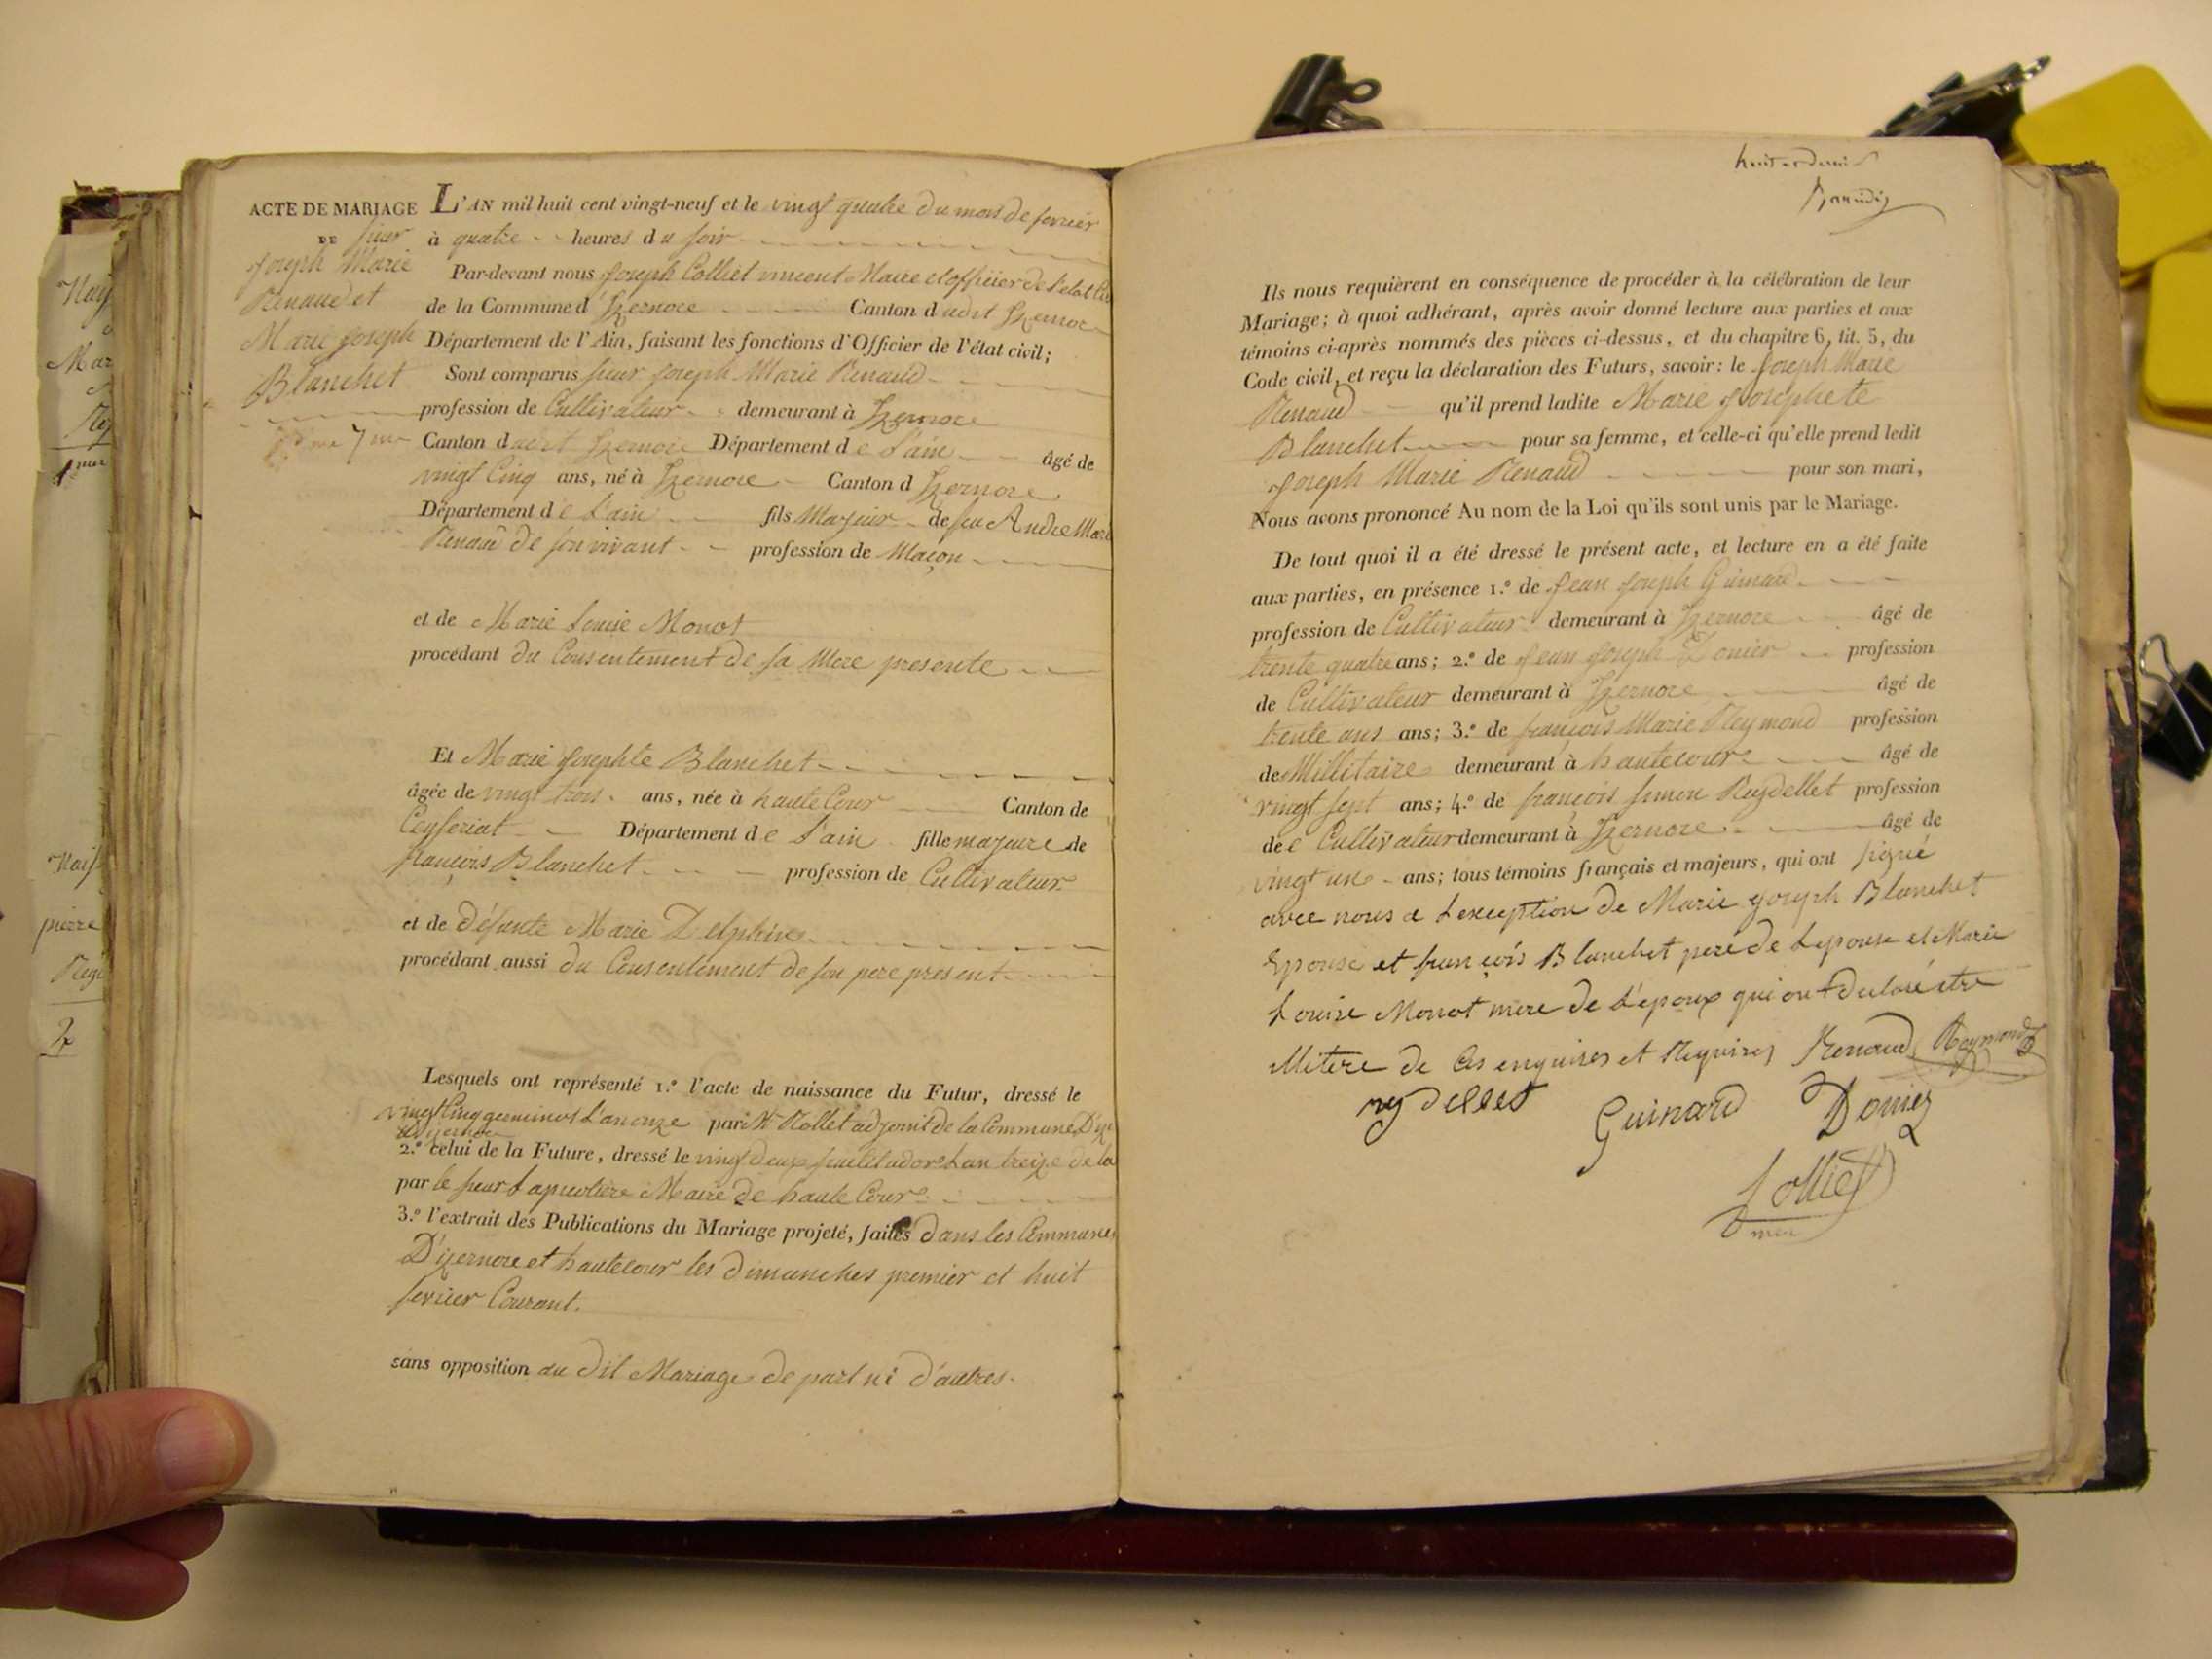 ACTE DE MARIAGE
DE sieur
Joseph Marie
Renaud et
Marie Joseph
Blanchet
7me
L'AN mil huit cent vingt-neuf et le vingt quatre du mois de fevrier
à quatre heures du soir
Par-devant nous Joseph Colliet vincent Maire et officier de l'etat
de la Commune d'Izernore Canton dudit Izernore
Département de l'Ain, faisant les fonctions d'Officier de l'état civil;
Sont comparus sieur Joseph Marie Renaud
profession de Cultivateur demeurant à Izernore
Canton dudit Izernore Département de L'ain âgé de
vingt Cinq ans, né à Izernore Canton d Izernore
Département de L'ain fils Majeur de feu André Marie
Renaud de son vivant profession de Maçon
et de Marie Louise Monot
procédant du Consentement de sa Mere presente
Et Marie Josephte Blanchet
âgée de vingt trois ans, née à haute Cour Canton de
Ceyseriat Département de L'ain fille majeure de
françois Blanchet profession de Cultivateur
et de défunte Marie Delphine
procédant aussi du Consentement de son pere present
Lesquels ont représenté 1.º l'acte de naissance du Futur, dressé le
vingt Cinq germinal L'an onze par Mr Rollet adjoint de la Commune
2.º celui de la Future, dressé le vingt deux L'an treize de la
par le sieur Maire de haute Cour
3.º l'extrait des Publications du Mariage projeté, faites dans les Communes
D'izernore et hautecour les dimanches premier et huit
fevrier Courant.
sans opposition au dit Mariage de part ni d'autres.
Ils nous requièrent en conséquence de procéder à la célébration de leur
Mariage; à quoi adhérant, après avoir donné lecture aux parties et aux
témoins ci-après nommés des pièces ci-dessus, et du chapitre 6, tit. 5, du
Code civil, et reçu la déclaration des Futurs, savoir: le Joseph Marie
Renaud qu'il prend ladite Marie Josephete
Blanchet pour sa femme, et celle-ci qu'elle prend ledit
Joseph Marie Renaud pour son mari,
Nous avons prononcé Au nom de la Loi qu'ils sont unis par le Mariage.
De tout quoi il a été dressé le présent acte, et lecture en a été faite
aux parties, en présence 1.º de Jean Joseph Guinard
profession de Cultivateur demeurant à Izernore âgé de
trente quatre ans; 2.º de Jean Joseph Donier profession
de Cultivateur demeurant à Izernore âgé de
trente ans ans; 3.º de françois Marie Reymond profession
de Millitaire demeurant à hautecour âgé de
vingt sept ans; 4.º de françois Simon Reydellet profession
de Cultivateur demeurant à Izernore âgé de
vingt un ans; tous témoins français et majeurs, qui ont signé
avec nous a L'exception de Marie Joseph Blanchet
Epouse et françois Blanchet pere de L'epouse et Marie
Louise Monot mere de L'epoux qui ont declaré être
illitere de Ces enquises et Requises Renaud Reymond
reydellet Guinard Donier
Colliet